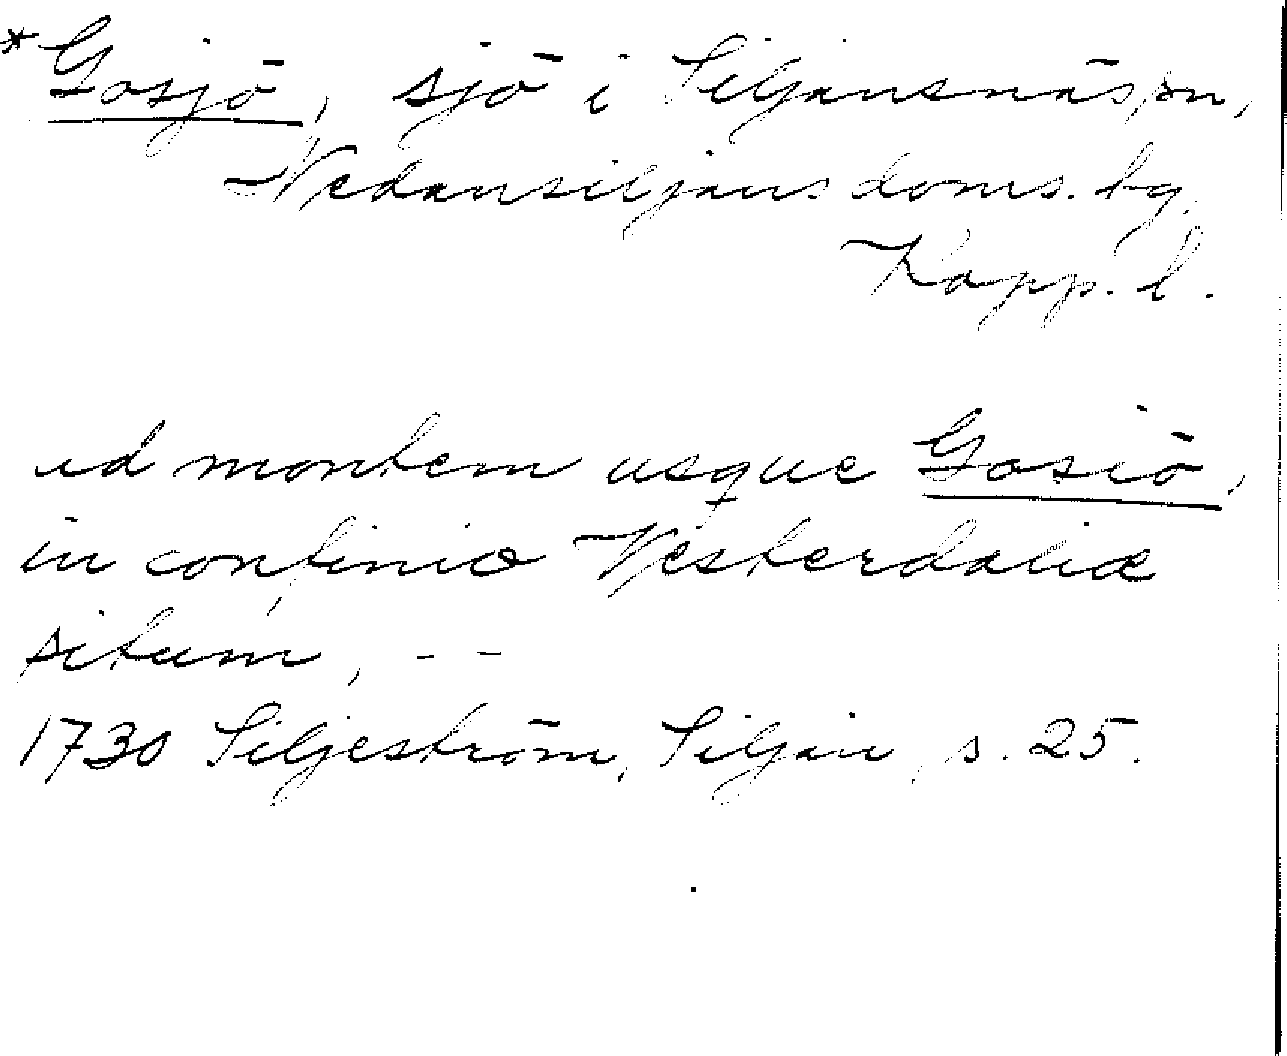 *Gosjö, sjö i Siljansnäs sn,
Nedansiljans doms. bg.
Kopp. l.
ad montem usque Gosiö,
in confinio Vesterdaliæ
situm, - -
1730 Siljeström, Siljan, s. 25.